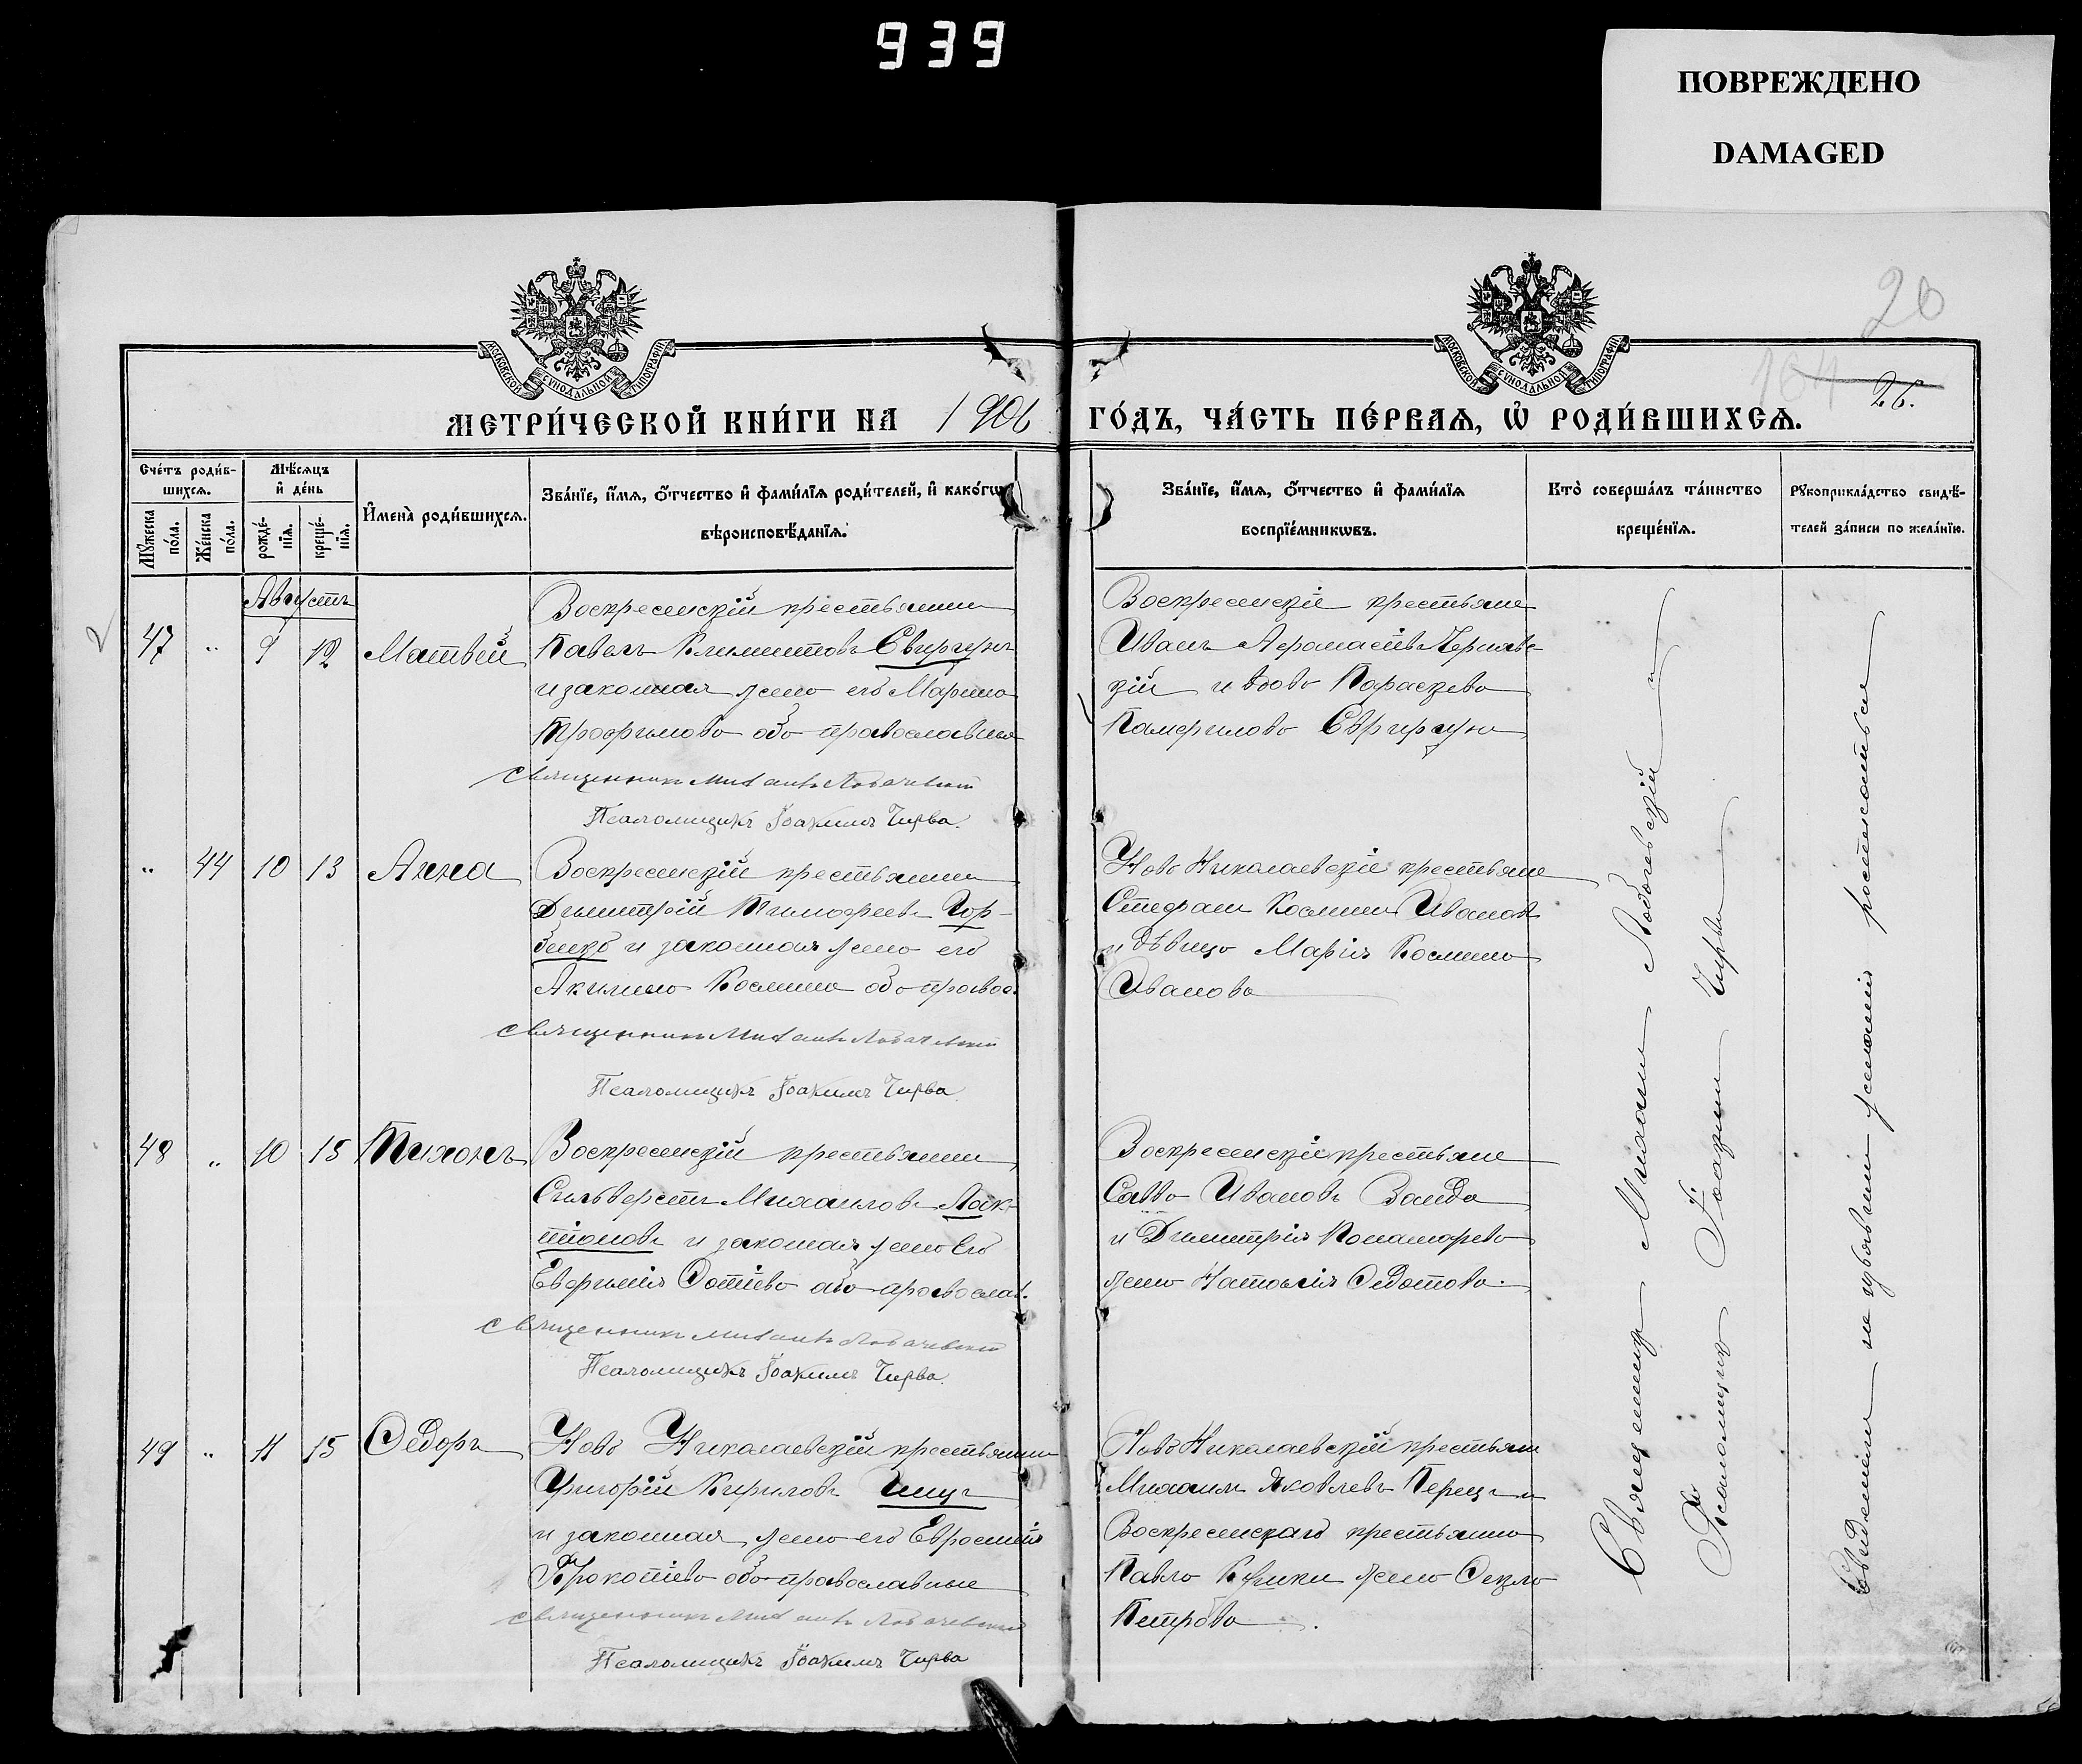 939
ПОВРЕЖДЕНО
DAMAGED
МОСКОВСКОЙ СѴНОДАЛЬНОЙ ТИПОГРАФІИ
МОСКОВСКОЙ СѴНОДАЛЬНОЙ ТИПОГРАФІИ
20
26.
МЕТРИ́ЧЕСКОЙ КНИ́ГИ НА 1906 ГО́ДЪ, ЧА́СТЬ ПЕ́РВАѦ, Ѡ РОДИ́ВШИХСѦ.
Сче́тъ роди́в-
шихсѧ.
Мꙋжеска по́ла.
Же́нска по́ла.
Мѣ́сѧцъ
и҆ де́нь
рожде́-
нїѧ.
креще́-
нїѧ.
И҆мена̀ роди́вшихсѧ.
Зва́нїе, и҆́мѧ, ѻ҆́тчество и҆ фами́лїѧ роди́телей, и҆ како́гѡ
вѣроисповѣ́данїѧ.
Зва́нїе, и҆́мѧ, ѻ҆́тчество и҆ фами́лїѧ
воспрїе́мникѡвъ.
Кто̀ соверша́лъ та́инство
креще́нїѧ.
Рꙋкоприкла́дство свидѣ́-
телей за́писи по жела́нїю.
Августъ
47 " 9 12 Матвей
Воскресенскій крестьянинъ
Павелъ Климентовъ Свиргунъ
и законная жена его Марина
Трофимова оба православные
Священникъ Михаилъ Лобачевскій
Псаломщикъ Іоакимъ Чирва.
Воскресенскіе крестьяне
Иванъ Афанасіевъ Чернявс-
кій и вдова Параскева
Памфилова Свиргунъ
" 44 10 13 Анна
Воскресенскій крестьянинъ
Димитрій Тимофеевъ Гор-
бенко и законная жена его
Акилина Космина оба правос.
Священникъ Михаилъ Лобачевскій
Псаломщикъ Іоакимъ Чирва.
Ново Николаевскіе крестьяне
Стефанъ Косминъ Ивановъ
и дѣвица Марія Космина
Иванова
48 " 10 15 Тихонъ
Воскресенскій крестьянинъ
Сильверстъ Михаиловъ Лок-
тіоновъ и законная жена его
Евфимія Фотіева оба православ.
Священникъ Михаилъ Лобачевскій
Псаломщикъ Іоакимъ Чирва.
Воскресенскіе крестьяне
Савва Ивановъ Ванда
и Димитрія Понаморева
жена Наталія Федотова.
49 " 11 15 Федоръ
Ново Николаевскій крестьянинъ
Григорій Кириловъ
и законная жена его Евросинія
Прокопіева оба православные
Священникъ Михаилъ Лобачевскій
Псаломщикъ Іоакимъ Чирва
Ново Николаевскій крестьян.
Михаилъ Яковлевъ Перецъ и
Воскресенскаго крестьянина
Павла жена Фекла
Петрова.
Священникъ Михаилъ Лобачевскій и
Псаломщикъ Іоакимъ Чирва
Свидетели не изъявили желанія росписаться